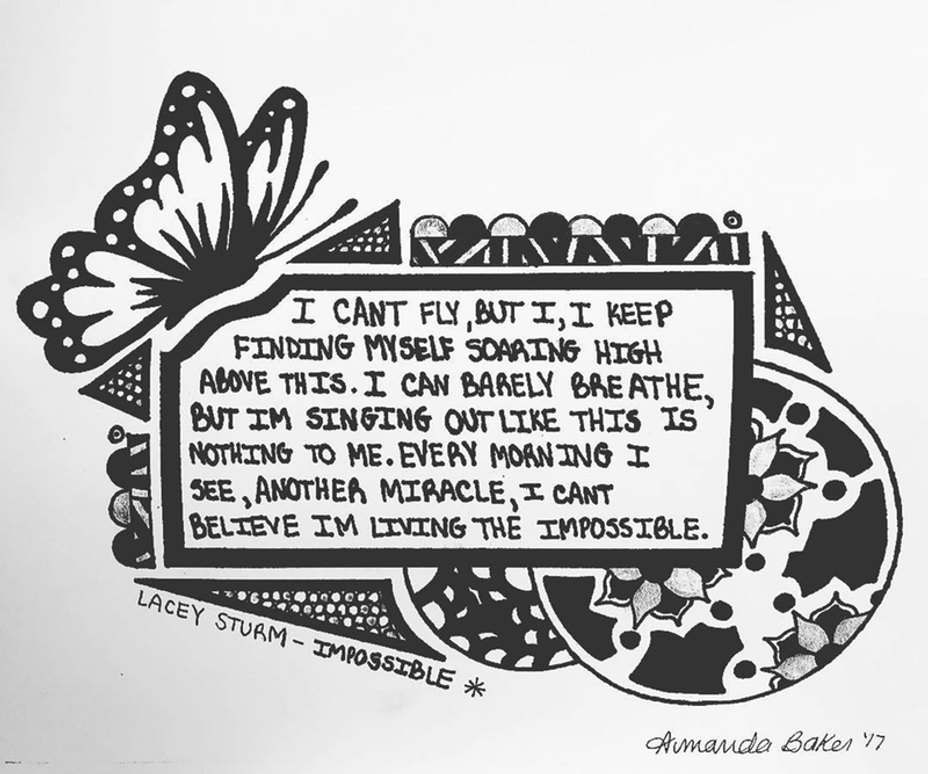 I CANT FLY, BUT I, I KEEP
FINDING MYSELF SOARING HIGH
ABOVE THIS. I CAN BARELY BREATHE,
BUT IM SINGING OUT LIKE THIS IS
NOTHING TO ME. EVERY MORNING I
SEE, ANOTHER MIRACLE, I CANT
BELIEVE IM LIVING THE IMPOSSIBLE.
LACEY STURM - IMPOSSIBLE *
Amanda Baker '17